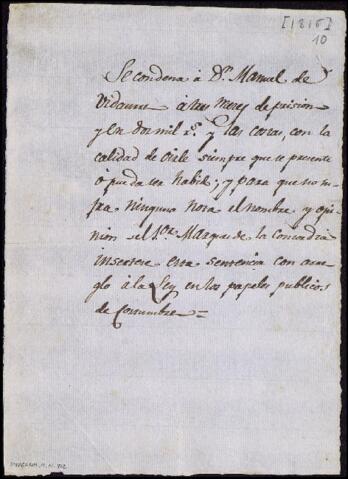 [1816]
10
Se condena à Dn. Manuel de
Vidaurre à tres meses de prision
y en dos mil ps. y las costas, con la
calidad de oirle siempre que se presente
ó pueda ser habido; y para que no su-
fra ninguna nota el nombre, y opi-
nion del Sor. Marques de la Concordia
insertese esta sentencia con arre-
glo à la Ley en los papeles publicos
de costumbre =